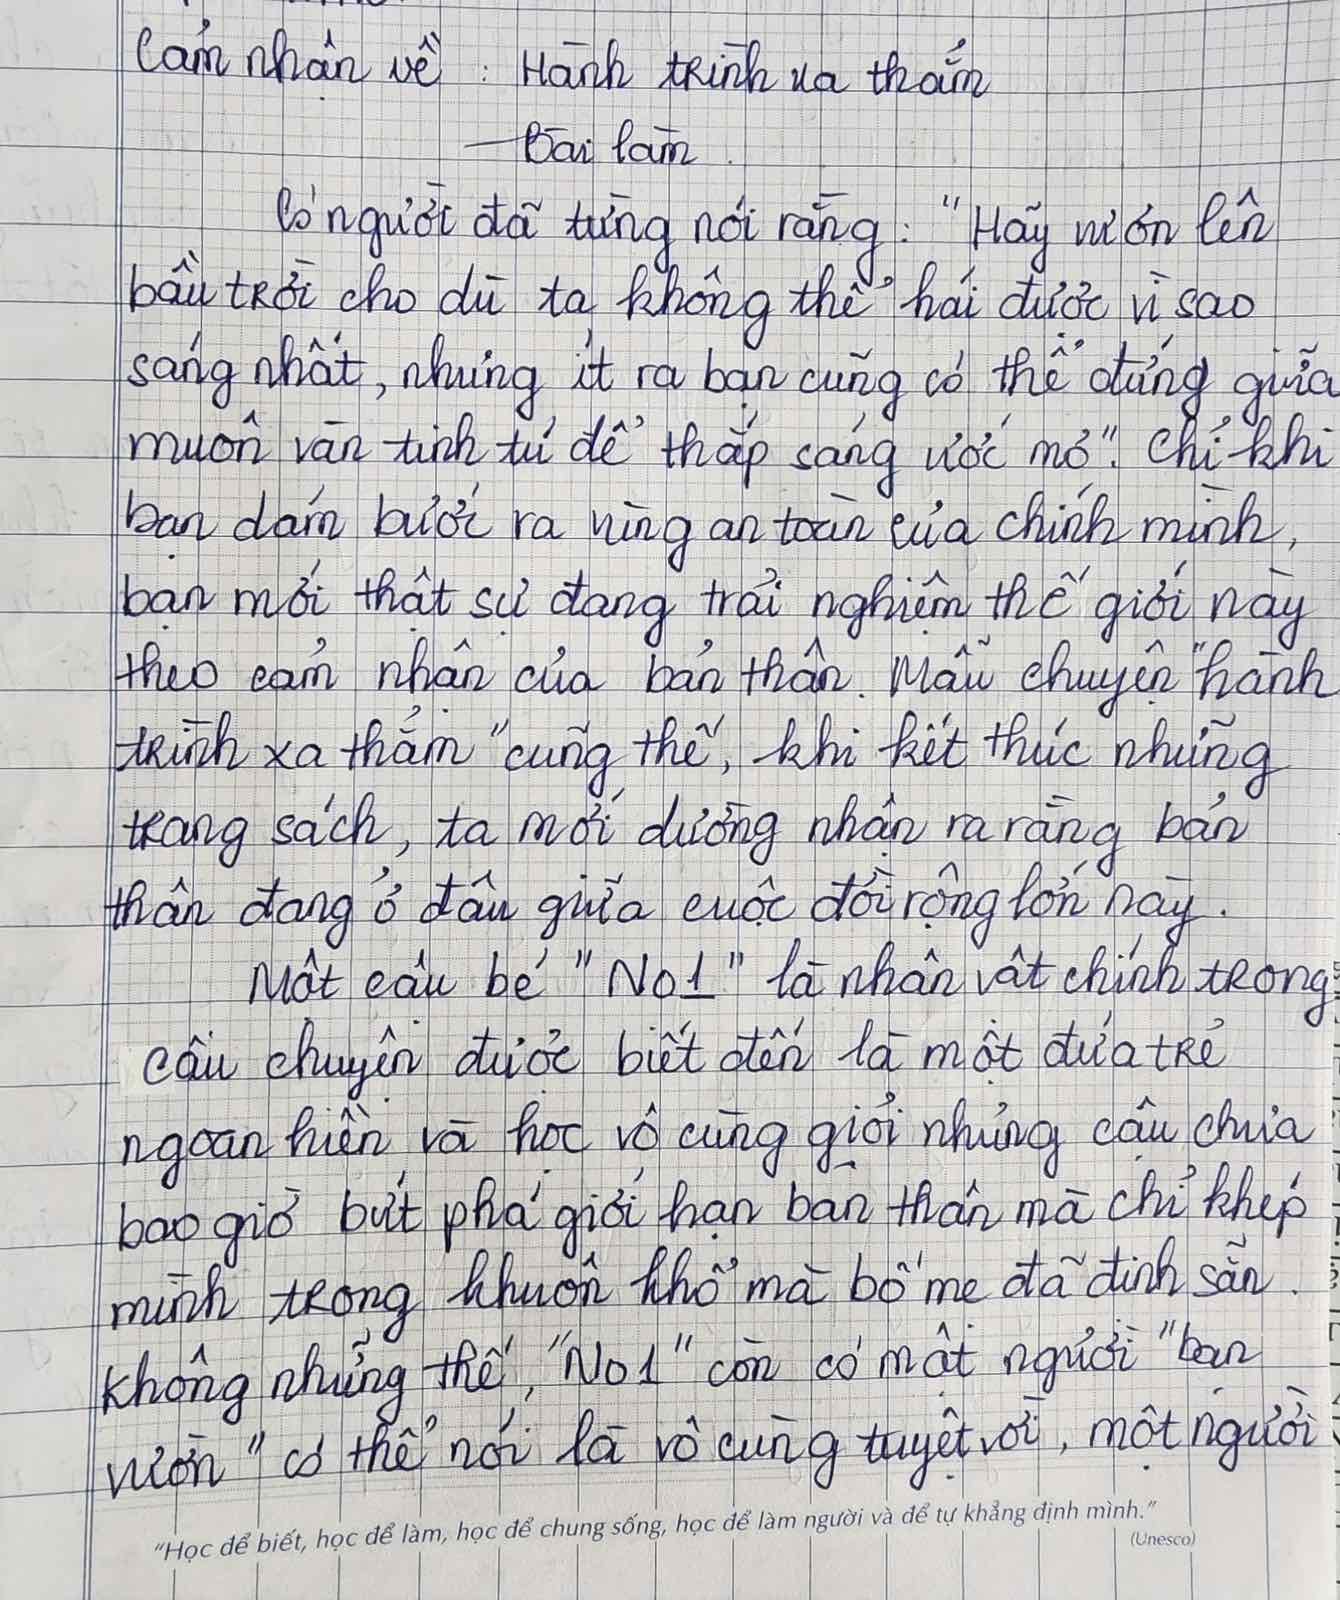 Cảm nhận về : Hành trình xa thẳm
Bài làm.
Có người đã từng nói rằng: "Hãy vươn lên
bầu trời cho dù ta không thể hái được vì sao
sáng nhất, nhưng ít ra bạn cũng có thể đứng giữa
muôn vàn tinh tú để thắp sáng ước mơ". Chỉ khi
bạn dám bước ra vùng an toàn của chính mình,
bạn mới thật sự đang trải nghiệm thế giới này
theo cảm nhận của bản thân. Mẩu chuyện "hành
trình xa thẳm" cũng thế, khi kết thúc những
trang sách, ta mới dường nhận ra rằng bản
thân đang ở đâu giữa cuộc đời rộng lớn này.
Một cậu bé "No1" là nhân vật chính trong
câu chuyện được biết đến là một đứa trẻ
ngoan hiền và học vô cùng giỏi nhưng cậu chưa
bao giờ bứt phá giới hạn bản thân mà chỉ khép
mình trong khuôn khổ mà bố mẹ đã định sẵn.
Không những thế, "No1" còn có một người "bạn
vườn" có thể nói là vô cùng tuyệt vời, một người
"Học để biết, học để làm, học để chung sống, học để làm người và để tự khẳng định mình."
(Unesco)